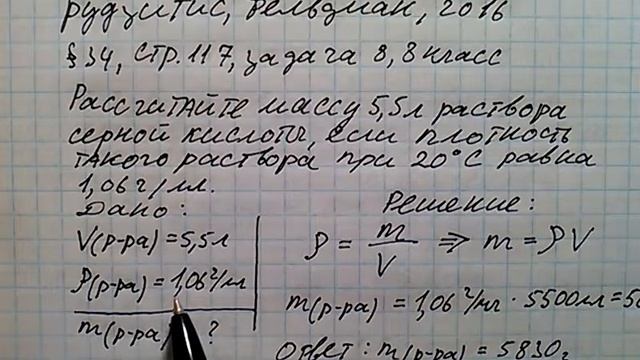 Рудзитис, Фельдман, 2016
§34, стр. 117, задача 8, 8 класс
Рассчитайте массу 5,5 л раствора
серной кислоты, если плотность
такого раствора при 20°С равна
1,06 г/мл.
Дано:
V(р-ра) = 5,5 л
ρ(р-ра) = 1,06 г/мл
m(р-ра) ?
Решение:
ρ = m/V ⇒ m = ρV
m(р-ра) = 1,06 г/мл · 5500мл = 58
Ответ: m(р-ра) = 5830 г